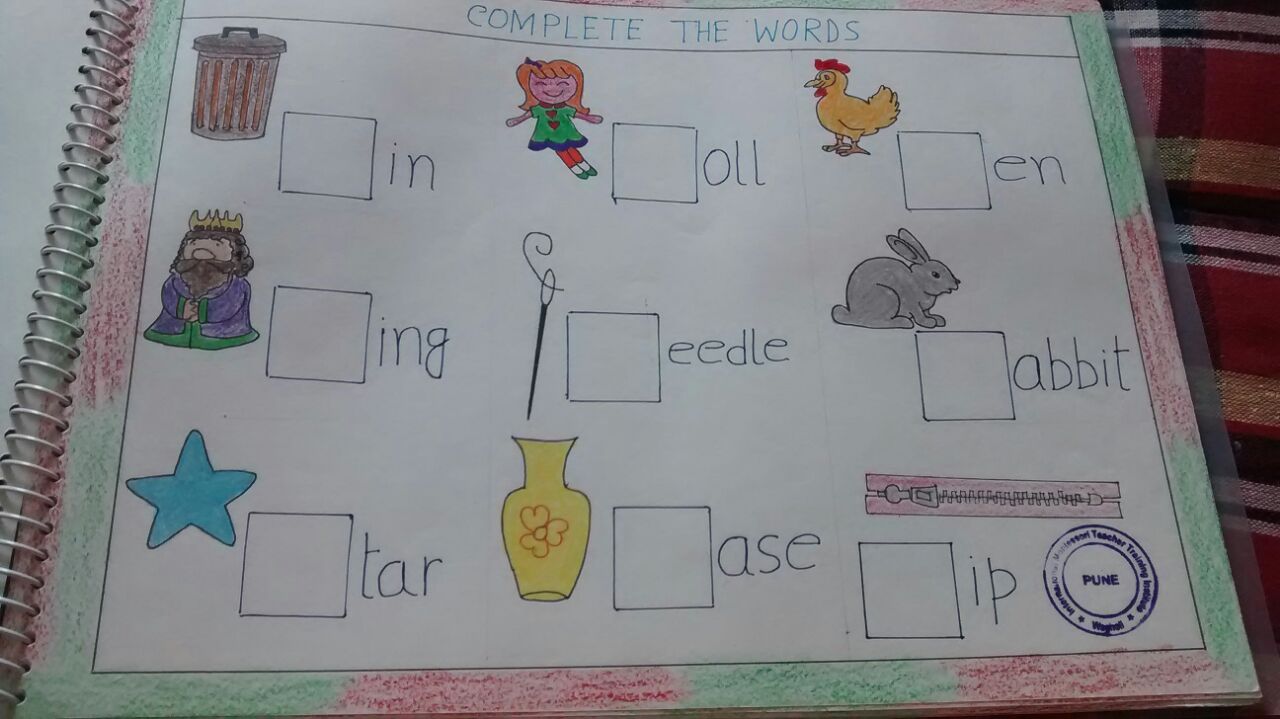 COMPLETE THE WORDS
in
oll
en
ing
eedle
abbit
tar
ase
ip
International Montessori Teacher Training Institute
PUNE
Wagholi